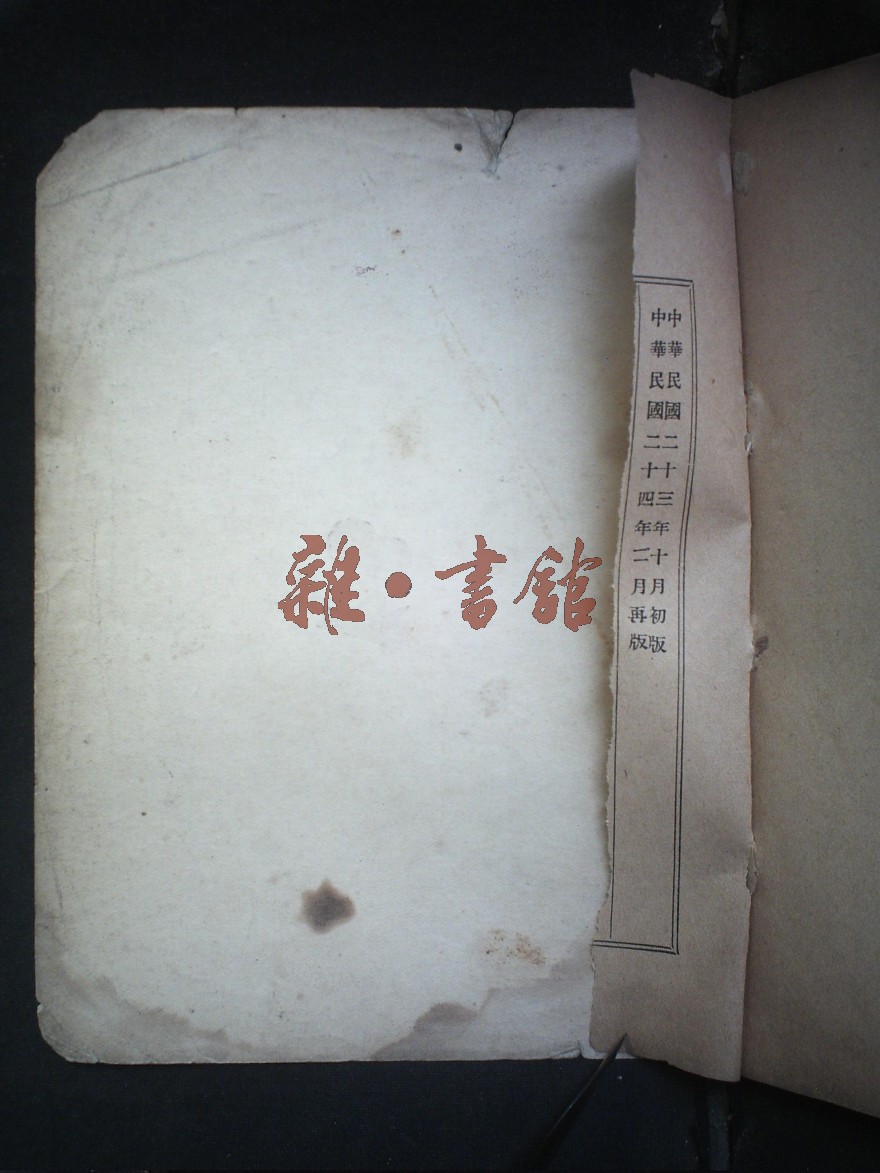 中華民國二十三年十月初版
中華民國二十四年二月再版
雜·書館